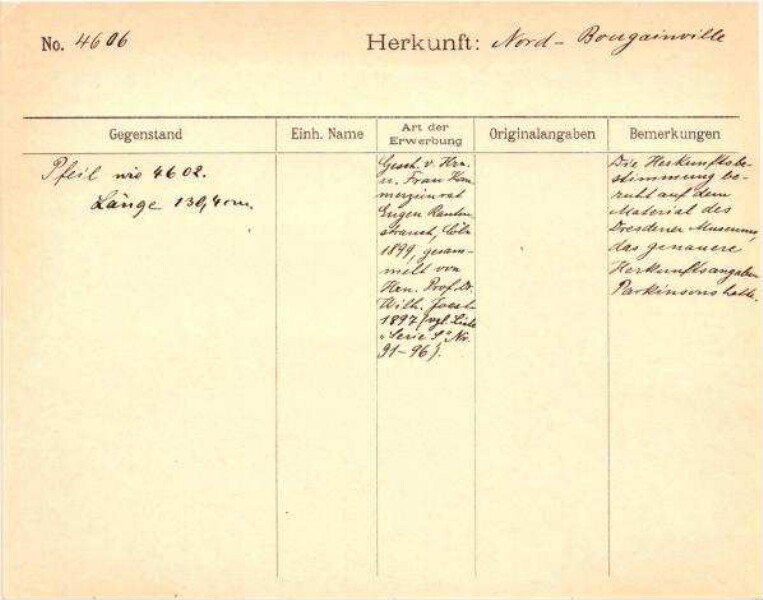 No. 4606
Herkunft: Nord-Bougainville
Gegenstand
Einh. Name
Art der
Erwerbung
Originalangaben
Bemerkungen
Pfeil wie 4602.
Länge 130,4 cm.
Gesch. v. Hrn.
u. Frau Kom-
merzienrat
Eugen Rauten-
strauch, Cöln
1899, gesam-
melt von
Hrn. Prof. Dr.
Wilh. Joest
1897 (vgl. Liste
"Serie S" No.
91-96).
Die Herkunftsbe-
stimmung be-
ruht auf dem
Material des
Dresdener Museums,
das genauere
Herkunftsangaben
Parkinsons hatte.